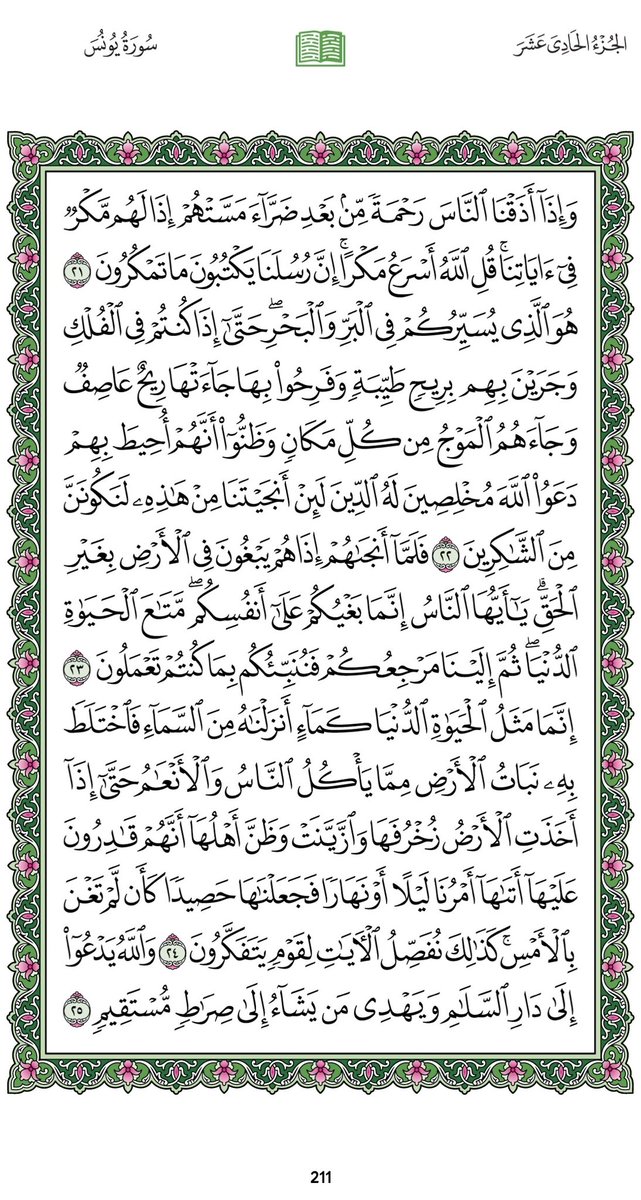 الجُزْءُ الحَادِى عَشَرَ
سُورَةُ يُونُسَ
وَإِذَآ أَذَقْنَا ٱلنَّاسَ رَحْمَةً مِّنۢ بَعْدِ ضَرَّآءَ مَسَّتْهُمْ إِذَا لَهُم مَّكْرٌ
فِىٓ ءَايَاتِنَاۚ قُلِ ٱللَّهُ أَسْرَعُ مَكْرًاۚ إِنَّ رُسُلَنَا يَكْتُبُونَ مَا تَمْكُرُونَ ٢١
هُوَ ٱلَّذِى يُسَيِّرُكُمْ فِى ٱلْبَرِّ وَٱلْبَحْرِۖ حَتَّىٰٓ إِذَا كُنتُمْ فِى ٱلْفُلْكِ
وَجَرَيْنَ بِهِم بِرِيحٍ طَيِّبَةٍ وَفَرِحُوا۟ بِهَا جَآءَتْهَا رِيحٌ عَاصِفٌ
وَجَآءَهُمُ ٱلْمَوْجُ مِن كُلِّ مَكَانٍ وَظَنُّوٓا۟ أَنَّهُمْ أُحِيطَ بِهِمْ
دَعَوُا۟ ٱللَّهَ مُخْلِصِينَ لَهُ ٱلدِّينَ لَئِنْ أَنجَيْتَنَا مِنْ هَٰذِهِۦ لَنَكُونَنَّ
مِنَ ٱلشَّٰكِرِينَ ٢٢ فَلَمَّآ أَنجَىٰهُمْ إِذَا هُمْ يَبْغُونَ فِى ٱلْأَرْضِ بِغَيْرِ
ٱلْحَقِّۗ يَٰٓأَيُّهَا ٱلنَّاسُ إِنَّمَا بَغْيُكُمْ عَلَىٰٓ أَنفُسِكُمۖ مَّتَٰعَ ٱلْحَيَوٰةِ
ٱلدُّنْيَاۖ ثُمَّ إِلَيْنَا مَرْجِعُكُمْ فَنُنَبِّئُكُم بِمَا كُنتُمْ تَعْمَلُونَ ٢٣
إِنَّمَا مَثَلُ ٱلْحَيَوٰةِ ٱلدُّنْيَا كَمَآءٍ أَنزَلْنَٰهُ مِنَ ٱلسَّمَآءِ فَٱخْتَلَطَ
بِهِۦ نَبَاتُ ٱلْأَرْضِ مِمَّا يَأْكُلُ ٱلنَّاسُ وَٱلْأَنْعَٰمُ حَتَّىٰٓ إِذَآ
أَخَذَتِ ٱلْأَرْضُ زُخْرُفَهَا وَٱزَّيَّنَتْ وَظَنَّ أَهْلُهَآ أَنَّهُمْ قَٰدِرُونَ
عَلَيْهَآ أَتَىٰهَآ أَمْرُنَا لَيْلًا أَوْ نَهَارًا فَجَعَلْنَٰهَا حَصِيدًا كَأَن لَّمْ تَغْنَ
بِٱلْأَمْسِۚ كَذَٰلِكَ نُفَصِّلُ ٱلْءَايَٰتِ لِقَوْمٍ يَتَفَكَّرُونَ ٢٤ وَٱللَّهُ يَدْعُوٓا۟
إِلَىٰ دَارِ ٱلسَّلَٰمِ وَيَهْدِى مَن يَشَآءُ إِلَىٰ صِرَٰطٍ مُّسْتَقِيمٍ ٢٥
211